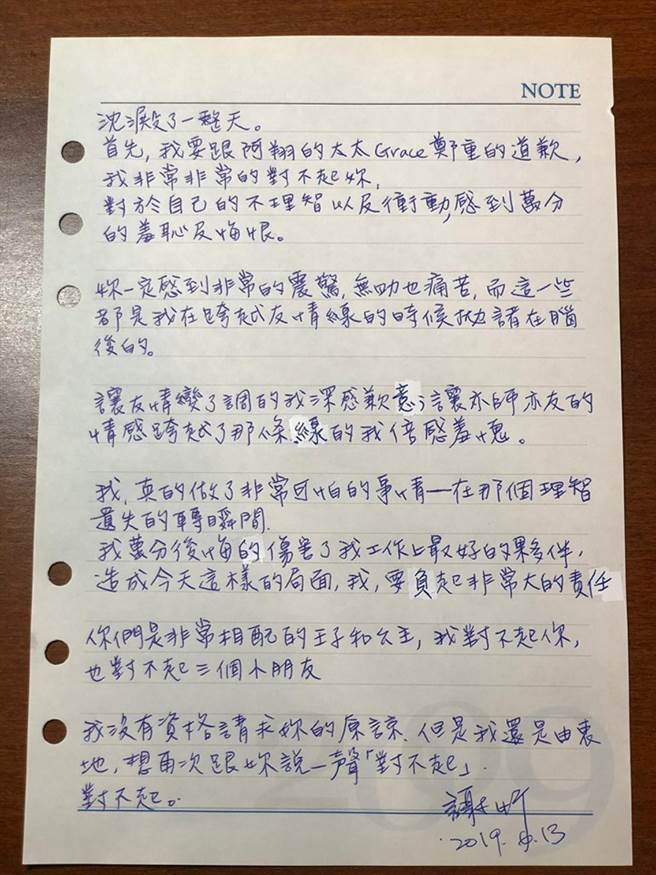 NOTE
沈澱了一整天。
首先,我要跟阿翔的太太Grace鄭重的道歉,
我非常非常的對不起妳,
對於自己的不理智以及衝動,感到萬分
的羞恥及悔恨。
妳一定感到非常的震驚,無助也痛苦,而這一些
都是我在跨越友情線的時候拋諸在腦
後的。
讓友情變了調的我深感歉意;讓亦師亦友的
情感跨越了那條線的我倍感羞愧。
我,真的做了非常可怕的事情—在那個理智
遺失的轉瞬間.
我萬分後悔的傷害了我工作上最好的夥伴,
造成今天這樣的局面,我,要負起非常大的責任
你們是非常相配的王子和公主,我對不起你,
也對不起三個小朋友
我沒有資格請求妳的原諒.但是我還是由衷
地,想再次跟妳說一聲「對不起」.
對不起。
2019.
13